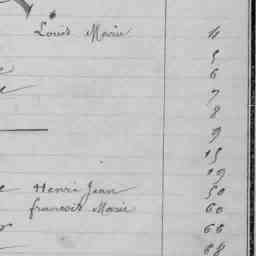 Louis Marie 4
5
6
7
8
9
15
19
Henri Jean 50
francois Marie 60
66
68